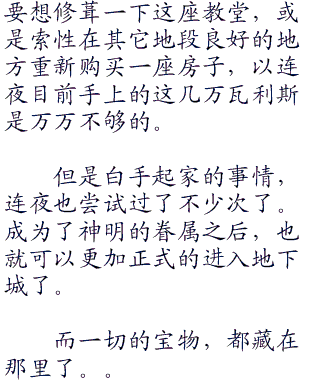 要想修葺一下这座教堂，或
是索性在其它地段良好的地
方重新购买一座房子，以连
夜目前手上的这几万瓦利斯
是万万不够的。
但是白手起家的事情，
连夜也尝试过了不少次了。
成为了神明的眷属之后，也
就可以更加正式的进入地下
城了。
而一切的宝物，都藏在
那里了。。